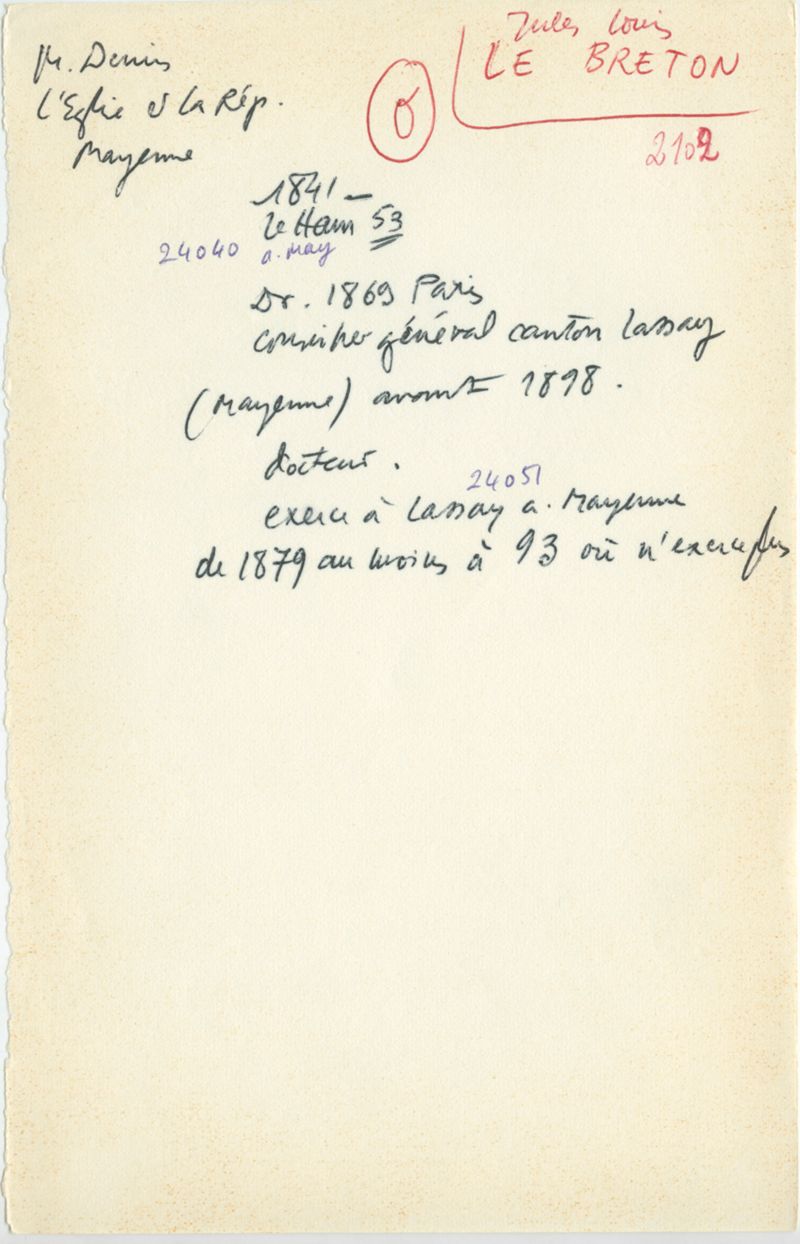 M. Denis
l'Eglise et la Rép.
Mayenne
Jules Louis
LE BRETON
2102
1841 -
le Ham 53
24040 a. May
Dr. 1869 Paris
conseiller général canton Lassay
(Mayenne) avant 1898.
docteur.
24051
exerce à Lassay a. Mayenne
de 1879 au moins à 93 où n'exerce plus